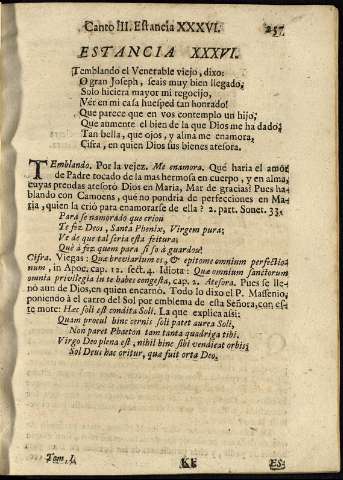 Canto III. Estancia XXXVI. 257
ESTANCIA XXXVI.
Temblando el Venerable viejo, dixo:
O gran Joseph, seais muy bien llegado,
Solo hiciera mayor mi regocijo,
Vér en mi casa huesped tan honrado!
Que parece que en vos contemplo un hijo,
Que aumente el bien de la que Dios me ha dado,
Tan bella, que ojos, y alma me enamora,
Cifra, en quien Dios sus bienes atesora.
Temblando. Por la vejez. Me enamora. Qué haria el amor
de Padre tocado de la mas hermosa en cuerpo, y en alma,
cuyas prendas atesoró Dios en Maria, Mar de gracias? Pues ha-
blando con Camoens, qué no pondria de perfecciones en Ma-
ria, quien la crió para enamorarse de ella? 2. part. Sonet. 33.
Para se namorado que criou
Te fez Deos, Santa Phenix, Virgem pura;
Ve de que tal seria esta feitura,
Que á fez quem para si so á guardou!
Cifra. Viegas: Quæ breviarium es, & epitome omnium perfectio-
num, in Apoc. cap. 12. sect. 4. Idiota: Quæ omnium sanctorum
omnia privilegia in te habes congesta, cap. 2. Atesora. Pues se lle-
nó aun de Dios, en quien encarnó. Todo lo dixo el P. Massenio,
poniendo á el carro del Sol por emblema de esta Señora, con es-
te mote: Hæc soli est condita Soli. La que explica assi:
Quam procul hinc cernis soli patet aurea Soli,
Non paret Phaeton tam tanta quadriga tibi.
Virgo Deo plena est, nihil hinc sibi vendicat orbis;
Sol Deus hac oritur, quæ fuit orta Deo.
Tom. I. Kk ES-